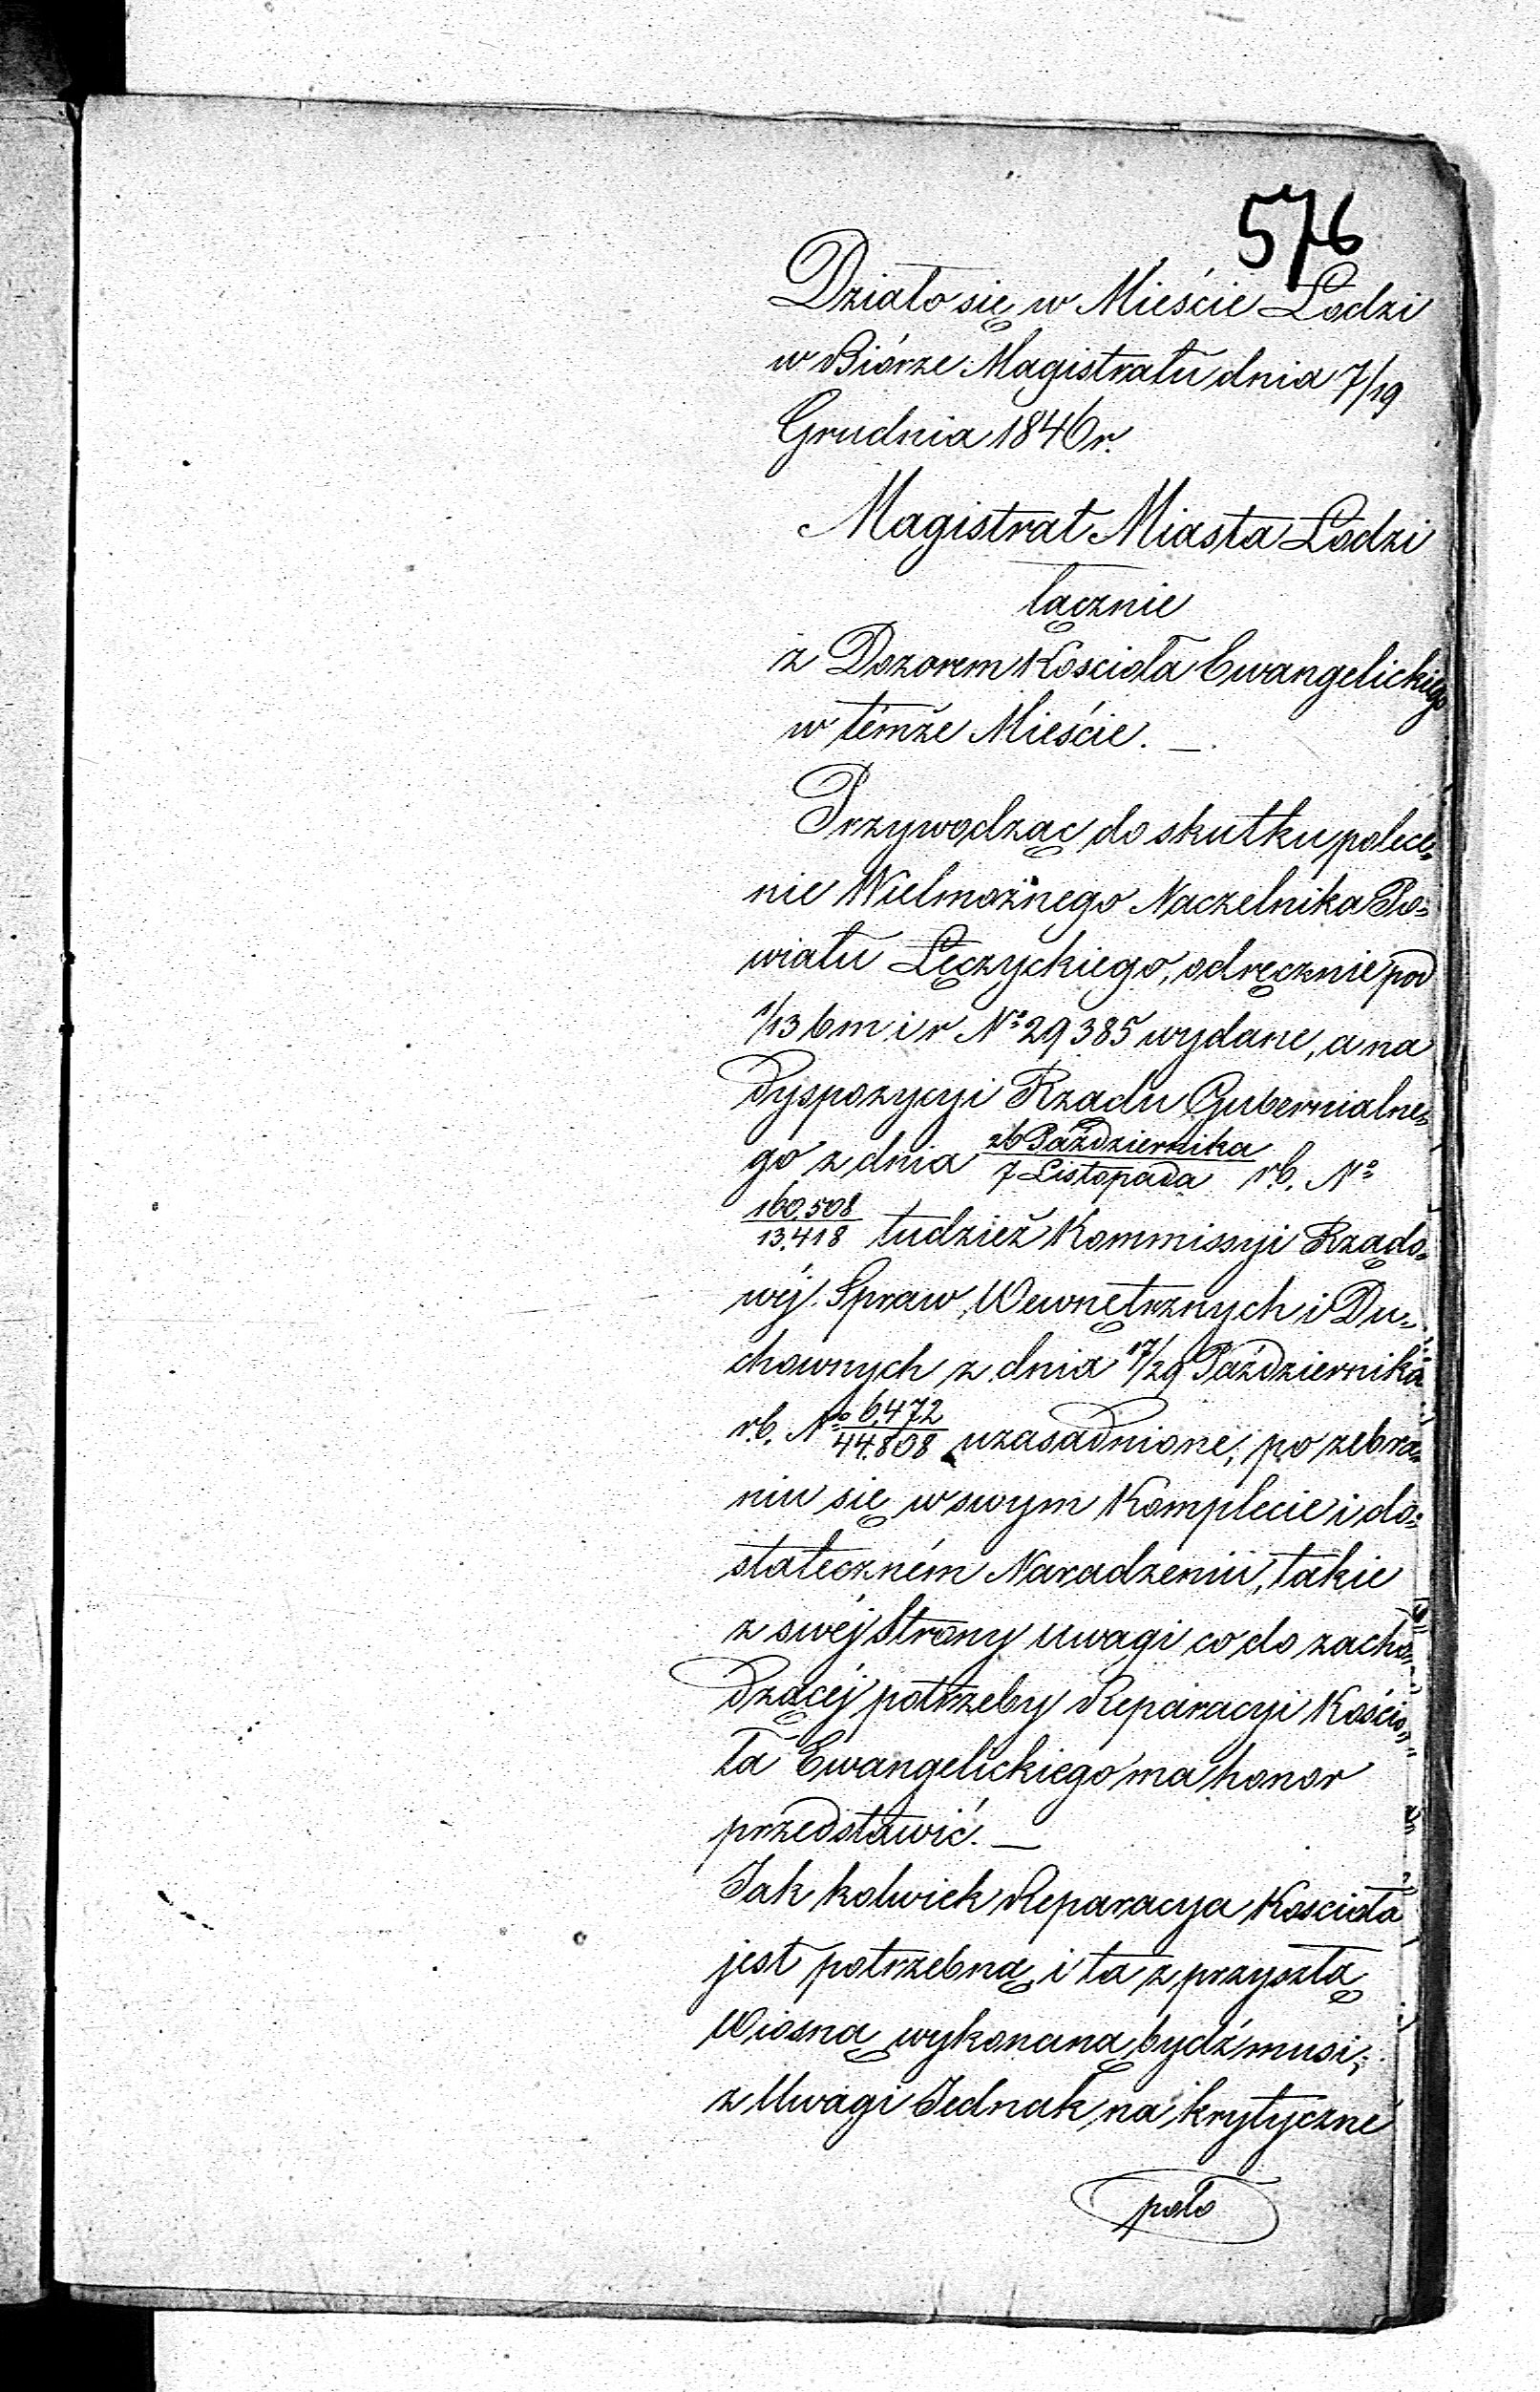 576
Działo się w Mieście Łodzi
w Biórze Magistratu dnia 7/19
Grudnia 1846 r.
Magistrat Miasta Łodzi
łącznie
z Dozorem Kościoła Ewangelickiego
w témże Mieście. —
Przywodząc do skutku polece„
nie Wielmożnego Naczelnika Po„
wiatu Łęczyckiego, odręcznie pod
1/13 b m i r Nº 29385 wydane, a na
Dyspozycyi Rządu Gubernialne„
go z dnia 26 Października/7 Listopada r.b. Nº
160.508/13.418 tudzież Kommissyi Rządo„
wéj Spraw Wewnętrznych i Du„
chownych z dnia 17/29 Października
r.b. Nº 6.472/44.808 uzasadnione, po zebra„
niu się w swym Komplecie i do„
stateczném Naradzeniu, takie
z swéj Strony uwagi co do zacho„
dzącéj potrzeby Reparacyi Kościo„
ła Ewangelickiego ma honor
przedstawić. —
Jak kolwiek Reparacya Kościoła
jest potrzebną i ta z przyszłą
Wiosną wykonaną bydź musi,
z Uwagi Jednak na krytyczne
poło